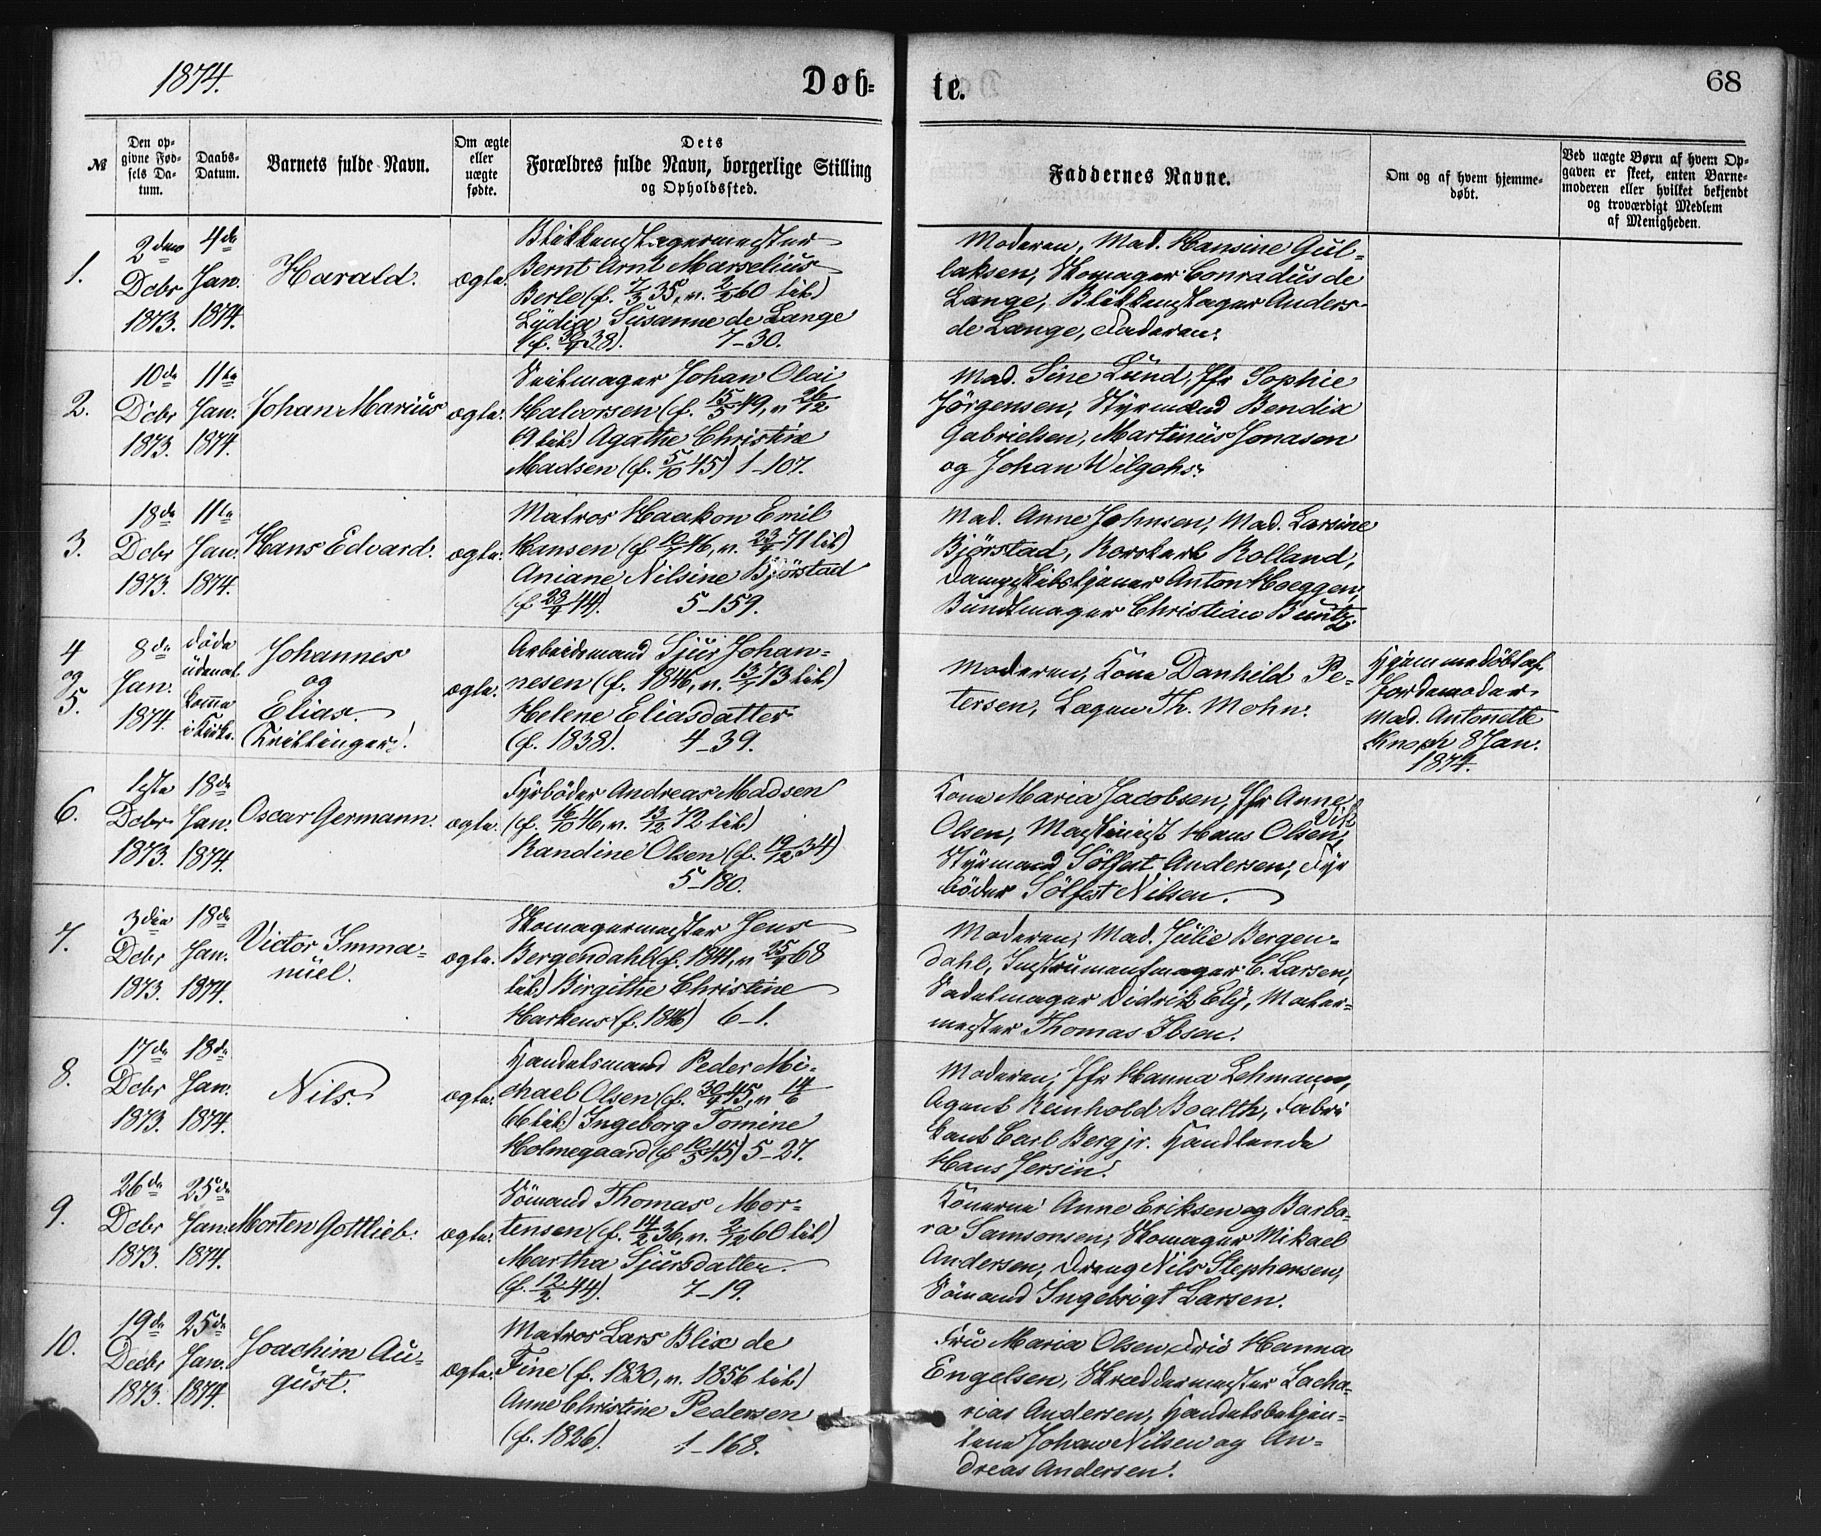 1874.
Døb-
te.
68
№
Den op-
givne Fød-
sels Da-
tum.
Daabs-
Datum.
Barnets fulde Navn.
Om ægte
eller
uægte
fødte.
Dets
Forældres fulde Navn, borgerlige Stilling
og Opholdssted.
Faddernes Navne.
Om og af hvem hjemme-
døbt.
Ved uægte Børn af hvem Op-
gaven er skeet, enten Barne-
moderen eller hvilket bekjendt
og troværdigt Medlem
af Menigheden.
1.
2den
Dcbr
1873.
4de
Jan.
1874.
Harald.
ægte.
Blikkenslagermester
Bernt Arnt Marselius
Berle (f. 7/3 35, v. 2/2 60 til)
Lydia Susanne de Lange
(f. 38). 7-30.
Moderen, Mad. Hansine Gul-
laksen, Skomager Conradus de
Lange, Blikkenslager Anders
de Lange, Faderen.
2.
10de
Dcbr
1873.
11te
Jan.
1874.
Johan Marius
ægte.
Seilmager Johan Olai
Halvorsen (f. 15/5 49, v. 26/12
69 til) Agathe Christine
Madsen (f. 5/10 45) 1-107.
Mad. Sine Lund, Jfr Sophie
Jörgensen, Styrmænd Bendix
Gabrielsen, Martinus Jonasen
og Johan Wilgohs.
3.
18de
Dcbr
1873.
11te
Jan.
1874.
Hans Edvard.
ægte.
Matros Haakon Emil
Hansen (f. 46, v. 71 til)
Aniane Nilsine Björstad
(f. 23/9 44). 5-159.
Mad. Anne Johnsen, Mad. Larsine
Björstad, Rolland,
Dampskibstjener Anton Hoeggen,
Bundtmager Christian Buntz.
4
og
5.
8de
Jan.
1874.
døde
uden at
komme
i Kirke.
Johannes
og
Elias.
(Tvillinger).
ægte.
Arbeidsmand Sjur Johan-
nesen (f. 1846, v. 13/7 73 til)
Helene Eliasdatter
(f. 1838). 4-39.
Moderen, Kone Danhild Pe-
tersen, Lægen Th. Mohn.
Hjemmedöbt af
Jordemoder
Mad. Antonette
Knoph 8 Jan.
1874.
6.
1ste
Dcbr.
1873.
18de
Jan.
1874.
Oscar Germann.
ægte.
Fyrböder Andreas Madsen
(f. 16/10 46, v. 13/12 72 til)
Randine Olsen (f. 19/12 34)
5-180.
Kone Maria Jacobsen, Jfr Anne
Olsen, Maskinist Hans Olsen
Styrmand Sölfest Andersen, Fyr
böder Sölfest Nilsen.
7.
3die
Dcbr
1873.
18de
Jan.
1874.
Victor Imma-
nuel.
ægte.
Skomagermester Jens
Bergendahl (f. 1841, v. 25/9 68
til) Birgithe Christine
Harkens (f. 1846) 6-1.
Moderen, Mad. Julie Bergen-
dahl, Instrumentmager C. Larsen,
Sadelmager Didrik Ely, Maler-
mester Thomas Ibsen.
8.
17de
Dcbr
1873.
18de
Jan.
1874.
Nils.
ægte.
Handelsmand Peder Mi-
chael Olsen (f. 30/9 45, v. 14/6
66 til) Ingeborg Tomine
Holmegaard (f. 10/5 45) 5-27.
Moderen, Jfr Hanna Lehmann,
Agent Reinhold Boalth, Fabri
kant Carl Berg jr. Handlende
Hans Jersin.
9.
26de
Dcbr
1873.
25de
Jan.
1874.
Morten Gottlieb.
ægte.
Sömand Thomas Mor-
tensen (f. 14/2 36, v. 2/12 60 til)
Martha Sjursdatter
(f. 12/2 44). 7-19.
Konerne Anne Eriksen og Barba-
ra Samsonsen, Skomager Mikael
Andersen, Dreng Nils Stephensen,
Sömand Ingebrigt Larsen.
10.
19de
Decbr
1873.
25de
Jan.
1874.
Joachim Au-
gust.
ægte.
Matros Lars Blix de
Fine (f. 1830, v. 1856 til)
Anne Christine Pedersen
(f. 1826). 1-168.
Fru Maria Olsen, Frk Hanna
Engelsen, Skræddermester Zacha-
rias Andersen, Handelsbetjen-
tene Johan Nilsen og An-
dreas Andersen.